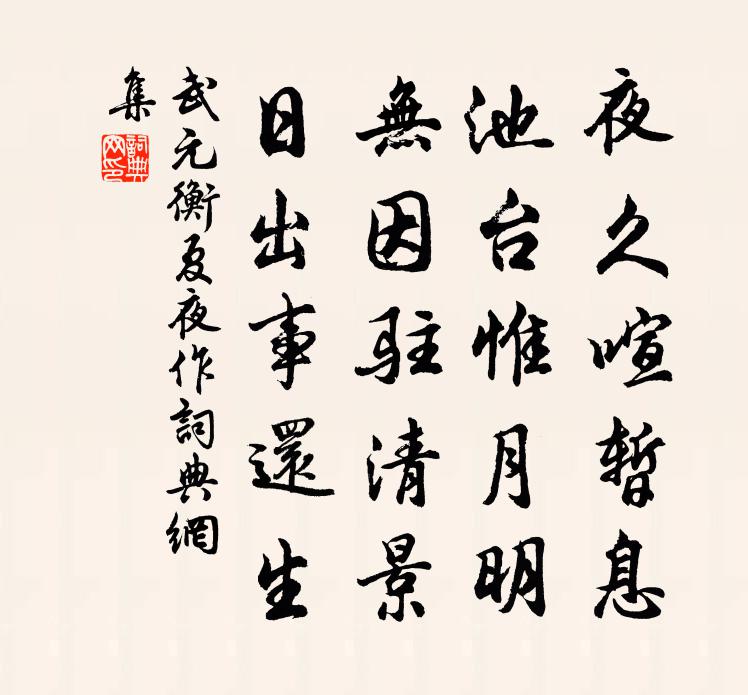 夜久喧暫息
池台惟月明
無因駐清景
日出事還生
武元衡夏夜作詞典網
集
詞典
網印